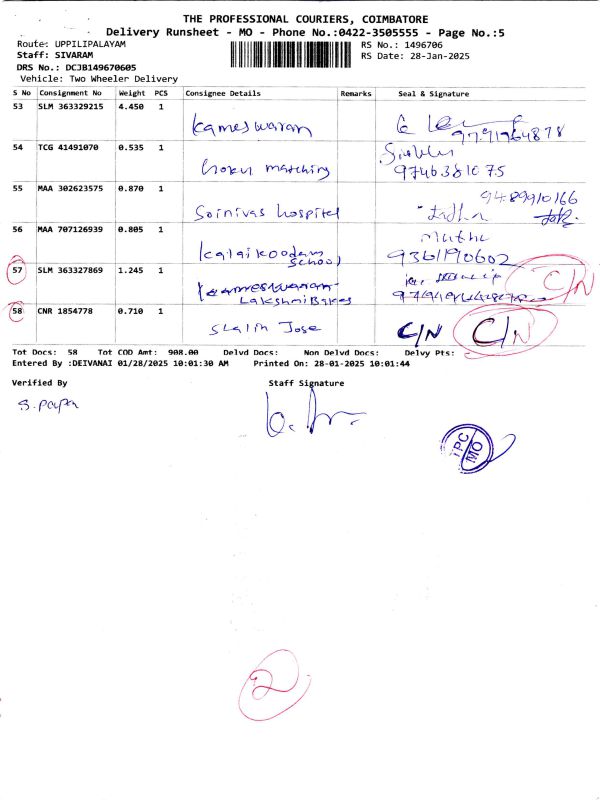 THE PROFESSIONAL COURIERS, COIMBATORE
Delivery Runsheet - MO - Phone No.:0422-3505555 - Page No.:5
Route: UPPILIPALAYAM
RS No.: 1496706
Staff: SIVARAM
RS Date: 28-Jan-2025
DRS No.: DCJB149670605
Vehicle: Two Wheeler Delivery
S No Consignment No Weight PCS Consignee Details Remarks Seal & Signature
53 SLM 363329215 4.450 1
Kameswaran 9791964878
54 TCG 41491070 0.535 1
matching 9746381075
55 MAA 302623575 0.870 1
Srinivas hospital 9489910166
56 MAA 707126939 0.805 1
Muthu
Kalaikoodam School 9361190602
57 SLM 363327869 1.245 1 C/N
Kameswaran
Lakshmi Bakes
58 CNR 1854778 0.710 1
Stalin Jose C/N C/N
Tot Docs: 58 Tot COD Amt: 908.00 Delvd Docs: Non Delvd Docs: Delvy Pts:
Entered By :DEIVANAI 01/28/2025 10:01:30 AM Printed On: 28-01-2025 10:01:44
Verified By Staff Signature
S. Papa
TPC
MO
2